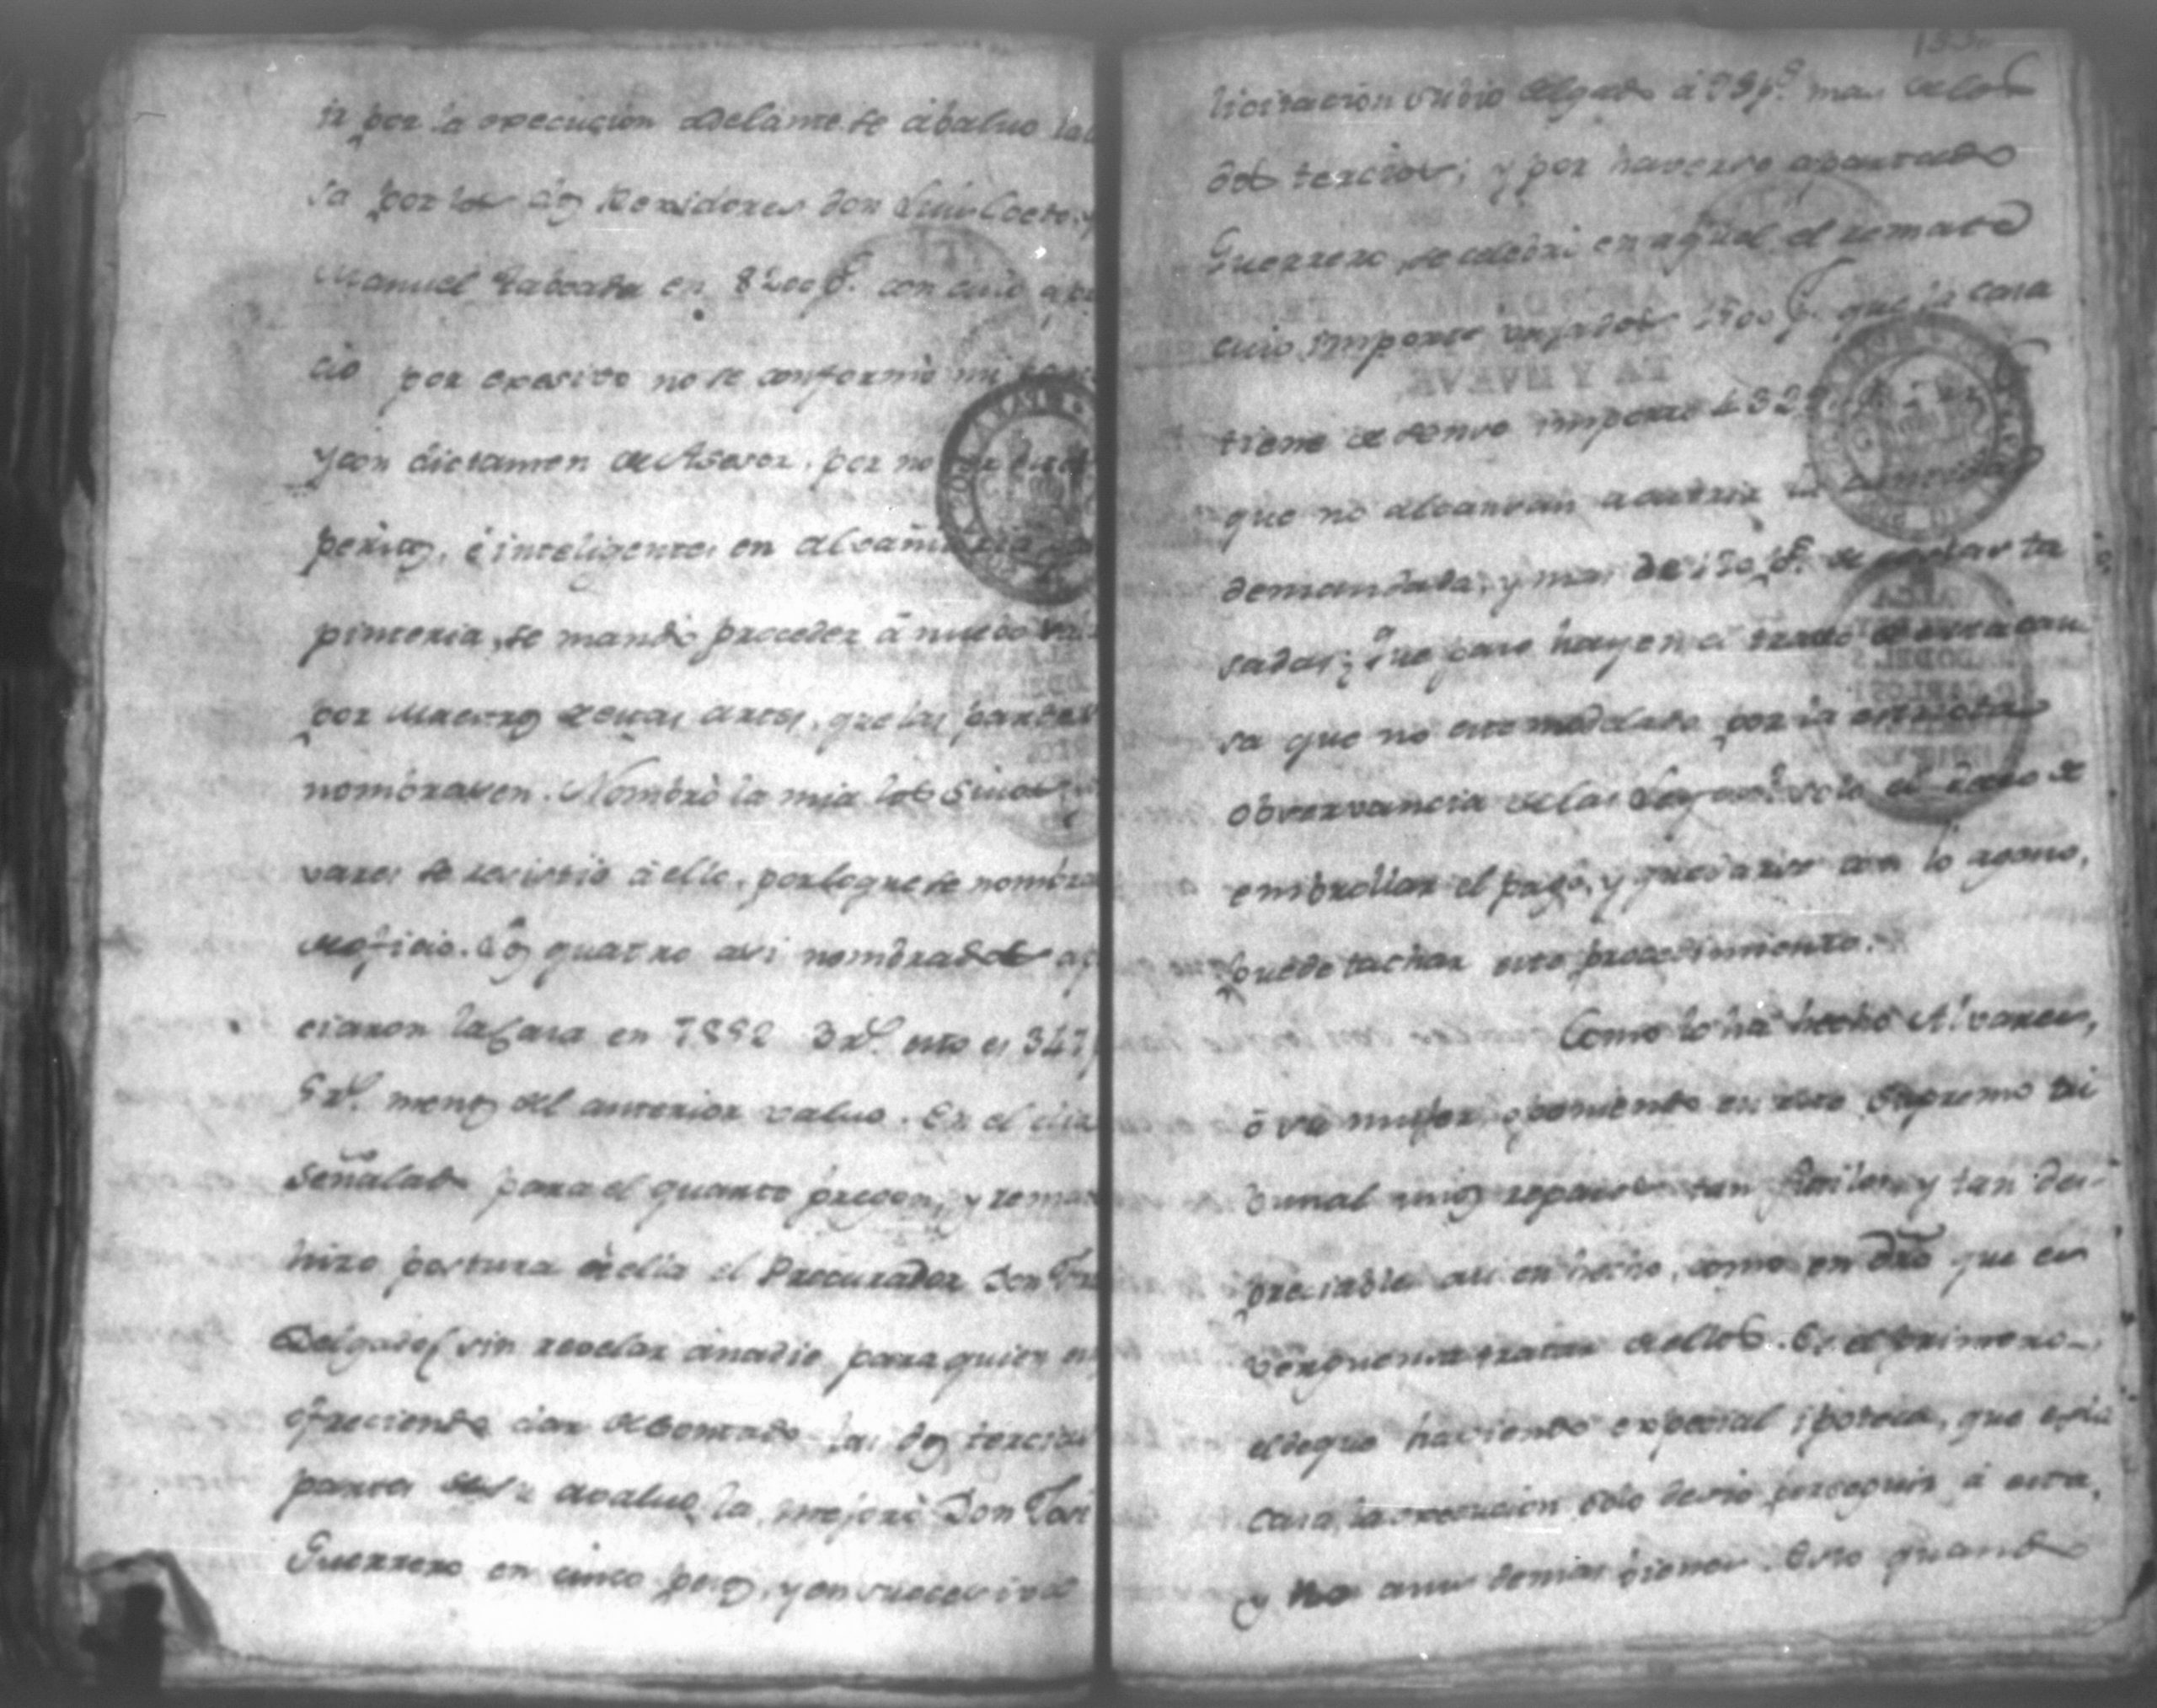 ir por la execucion adelante se abaluo la ca
sa por los dos Rexidores don Luis Coeto, y
Manuel Taboada en 8200 p.s con cuio apre
cio por exesivo no se conformó mi parte
y con dictamen de Asesor, por no ser
peritos, é inteligentes en albañileria
pinteria, se mandó proceder á nuebo
por Maestros de estas artes, que las partes
nombrasen. Nombrò la mia los suios,
vares se resistió á ello, por lo que se nombra
de oficio. Los quatro asi nombrados ap
ciaron la Casa en 7852 3 r.s esto es 347
5 r.s menos del anterior valuo. En el dia
señalado para el quarto pregon, y rema
hizo postura de ella el Procurador Don
Delgado (sin revelar á nadie para quien
ofreciendo dar de contado las dos tercias
partes de su avaluo, la mejoró Don José
Guerrero en cinco pesos, y en sucesiva
133
licitacion subio Delgado á 95 p.s mas de los
dos tercios; y por haverse apartado
Guerrero se celebró en aquel el remate
cuio importe vajados 1500 p.s que la Casa
tiene de senso importa 4329
que no alcanzan a cubrir la cantidad
demandada, y mas de 120 p.s de costas ca
sadas; Que paso hay en el trato de esta cau
sa que no este modelado por la estricta
observancia de las Leyes? solo el deseo de
embrollar el pago, y quedarse con lo ageno,
puede tachar este procedimiento.
Como lo ha hecho Alvares,
ò su muger, oponiendo en este Supremo tri
bunal unos reparos tan futiles, y tan des-
preciables asi en hecho, como en dro que es
verguenza tratar de ellos. Es el primero
el de que haviendo expecial ipoteca, que es la
casa, la execucion solo devio perseguir á esta,
y no a sus demas bienes. Esto quando